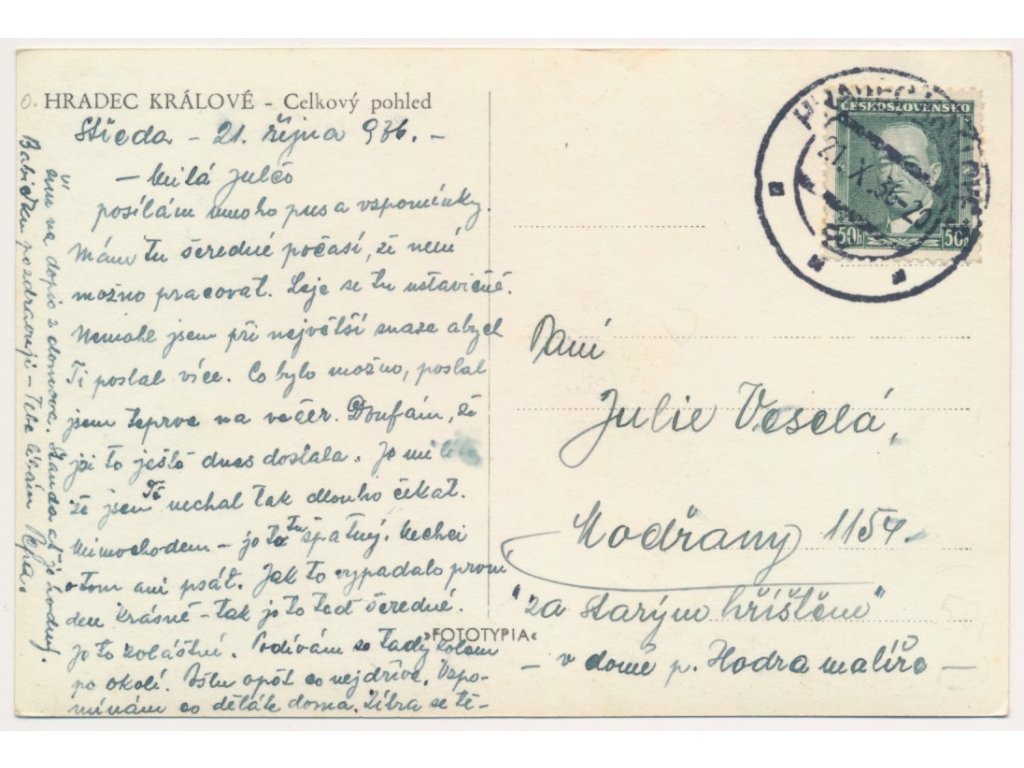 HRADEC KRÁLOVÉ - Celkový pohled
Středa - 21. října 936. -
- Milá Julčo
posílám mnoho pus a vzpomínky.
Mám tu šeredné počasí, že není
možno pracovat. Leje se tu ustavičně.
Nemohl jsem při největší snaze abych
Ti poslal více. Co bylo možno, poslal
jsem teprve na večer. Doufám, že
jsi to ještě dnes dostala. Je mi
že jsem Tě nechal tak dlouho čekat.
Mimochodem - je to tu špatný. Nechci
o tom ani psát. Jak to vypadalo první
den krásně - tak je to teď šeredné.
Je to zvláštní. Podívám se tady kolem
po okolí. Píšu opět co nejdříve. Vzpo-
mínám co děláte doma. Líbra se tě-
ším na dopis z domova. Standa ať je hodný.
Babičku pozdravuji - Tebe líbám Pepa.
»FOTOTYPIA«
ČESKOSLOVENSKO
50h 50h
HRADEC KRÁLOVÉ
21. X. 36-20
Paní
Julie Veselá,
Modřany 1154.
"za starým hřištěm"
- v domě p. Hodra malíře -